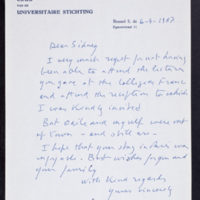 UNIVERSITAIRE STICHTING
6-4-1987
Dear Sidney
I very much regret for not having
been able to attend the lecture
you gave at the Collège de France
and attend the reception to which
I was kindly invited
But Emile and myself were out
of town - and still are -
I hope that your stay in here was
enjoyable. Best wishes for you and
your family
With kind regards
Yours sincerely